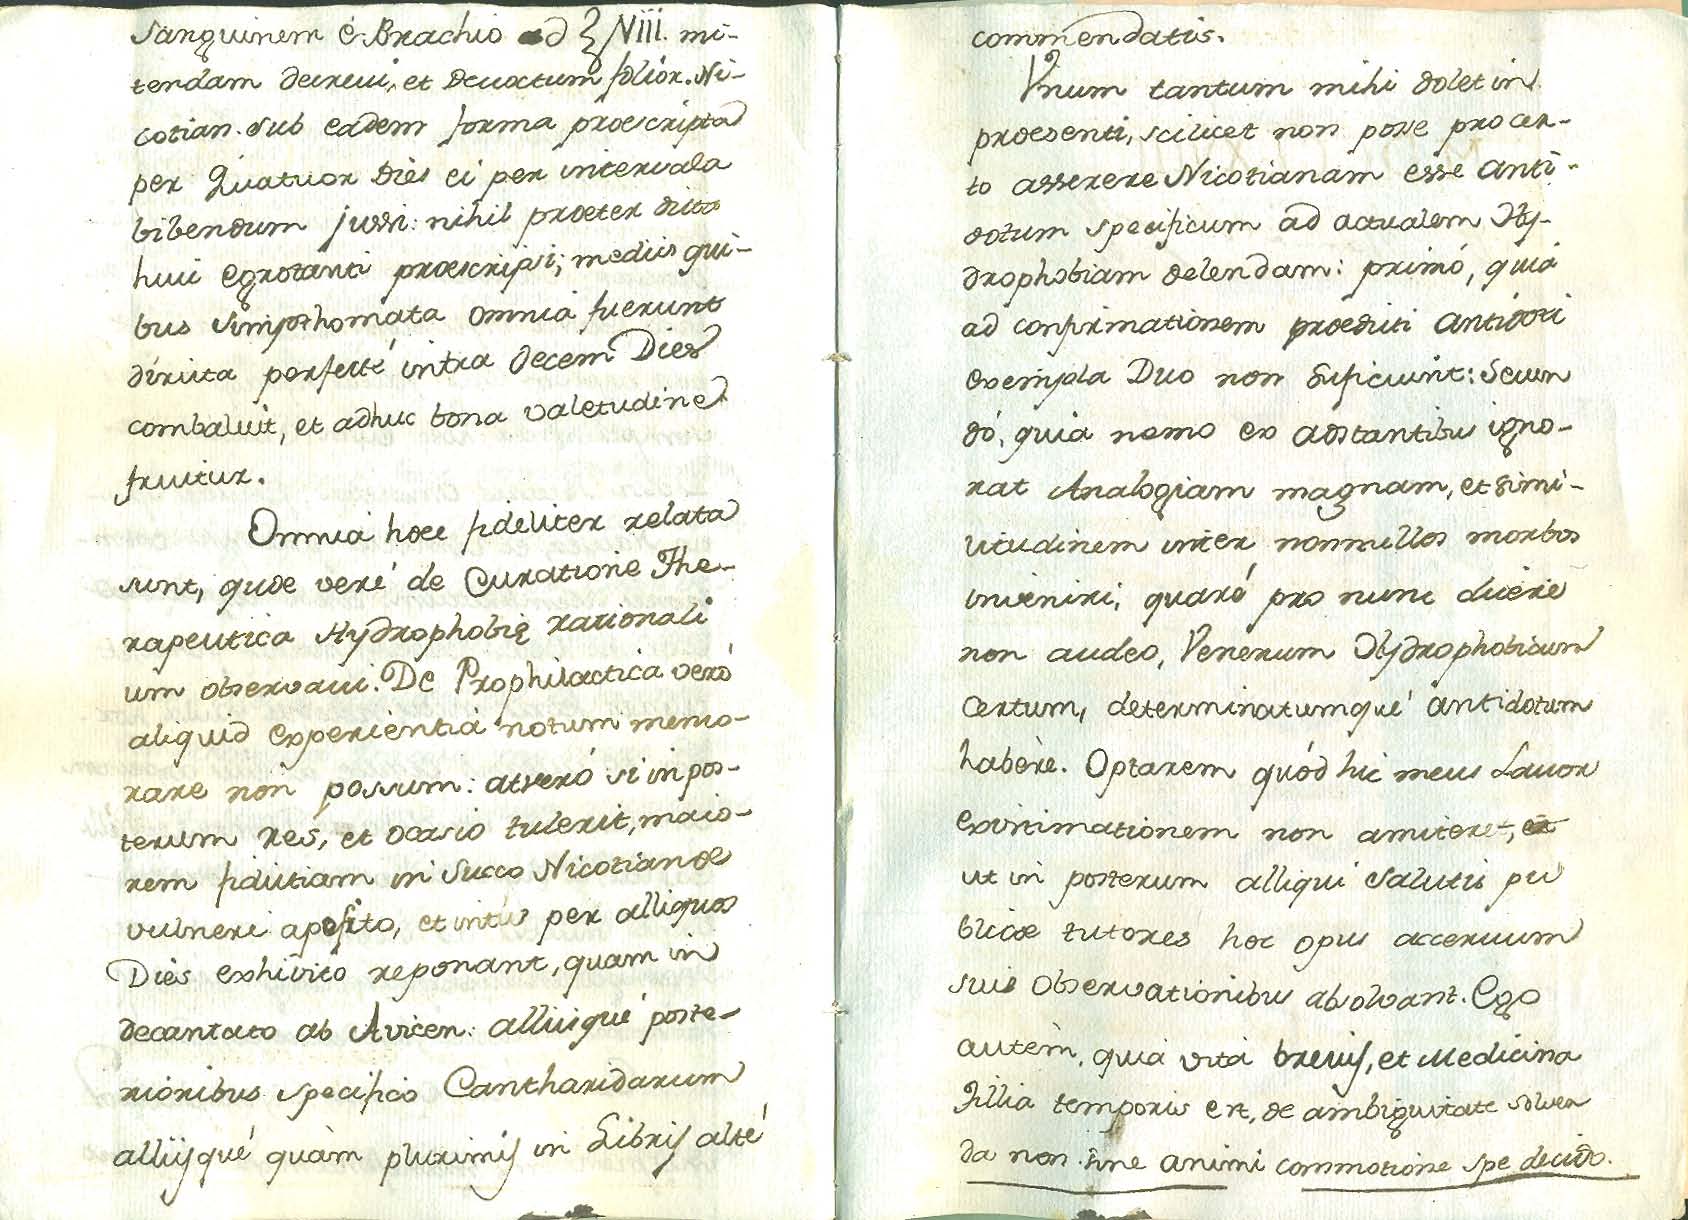 Sanguinem è Brachio ad ℥ VIII. mi-
tendam decrevi, et decoctum folior. Ni-
cotian. sub eadem forma proescripta
per Quatuor Diès ei per intervala
bibendum jussi: nihil proeter dicta
huic egrotanti proescripsi; mediis qui-
bus simpthomata omnia fuerunt
diruta perfectè intra decem Dies
combaluit, et adhuc bona valetudine
fruitur.
Omnia hoec fideliter relata
sunt, quoe verè de Curatione The-
rapeutica Hydrophobię rationali
um observavi. De Prophilactica verò
aliquid experientia notum memo-
rare non possum: atverò si in pos-
terum res, et ocasio tulerit, maio-
rem fidutiam in Succo Nicotianoe
vulneri aposito, et intùs per alliquos
Diès exhivito reponant, quam in
decantato ab Avicen: alliisquè poste-
rioribus specifico Cantharidarum
alliisquè quàm plurimis in Libris altè
commendatis.
Vnum tantum mihi dolet in
proesenti, scilicet non posse procer-
to asserere Nicotianam esse anti-
dotum specificum ad actualem Hy-
drophobiam delendam: primò, quia
ad confirmationem proedicti antidoti
exempla Duo non suficiunt: Secun
dò, quia nemo ex adstantibus igno-
rat Analogiam magnam, et simi-
litudinem inter nonnullos morbos
inveniri; quarè pro nunc dicere
non audeo, Venenum Hydrophobicum
certum, determinatumquè antidotum
habère. Optarem quòd hic meus Lavor
existimationem non amiteret,
ut in posterum alliqui salutis pu
blicoe tutores hoc opus accervum
suis observationibus absolvant. Ego
autèm, quia vita brevis, et Medicina
Fillia temporis est, de ambiguitate solven
da non sine animi commotione spe decido.